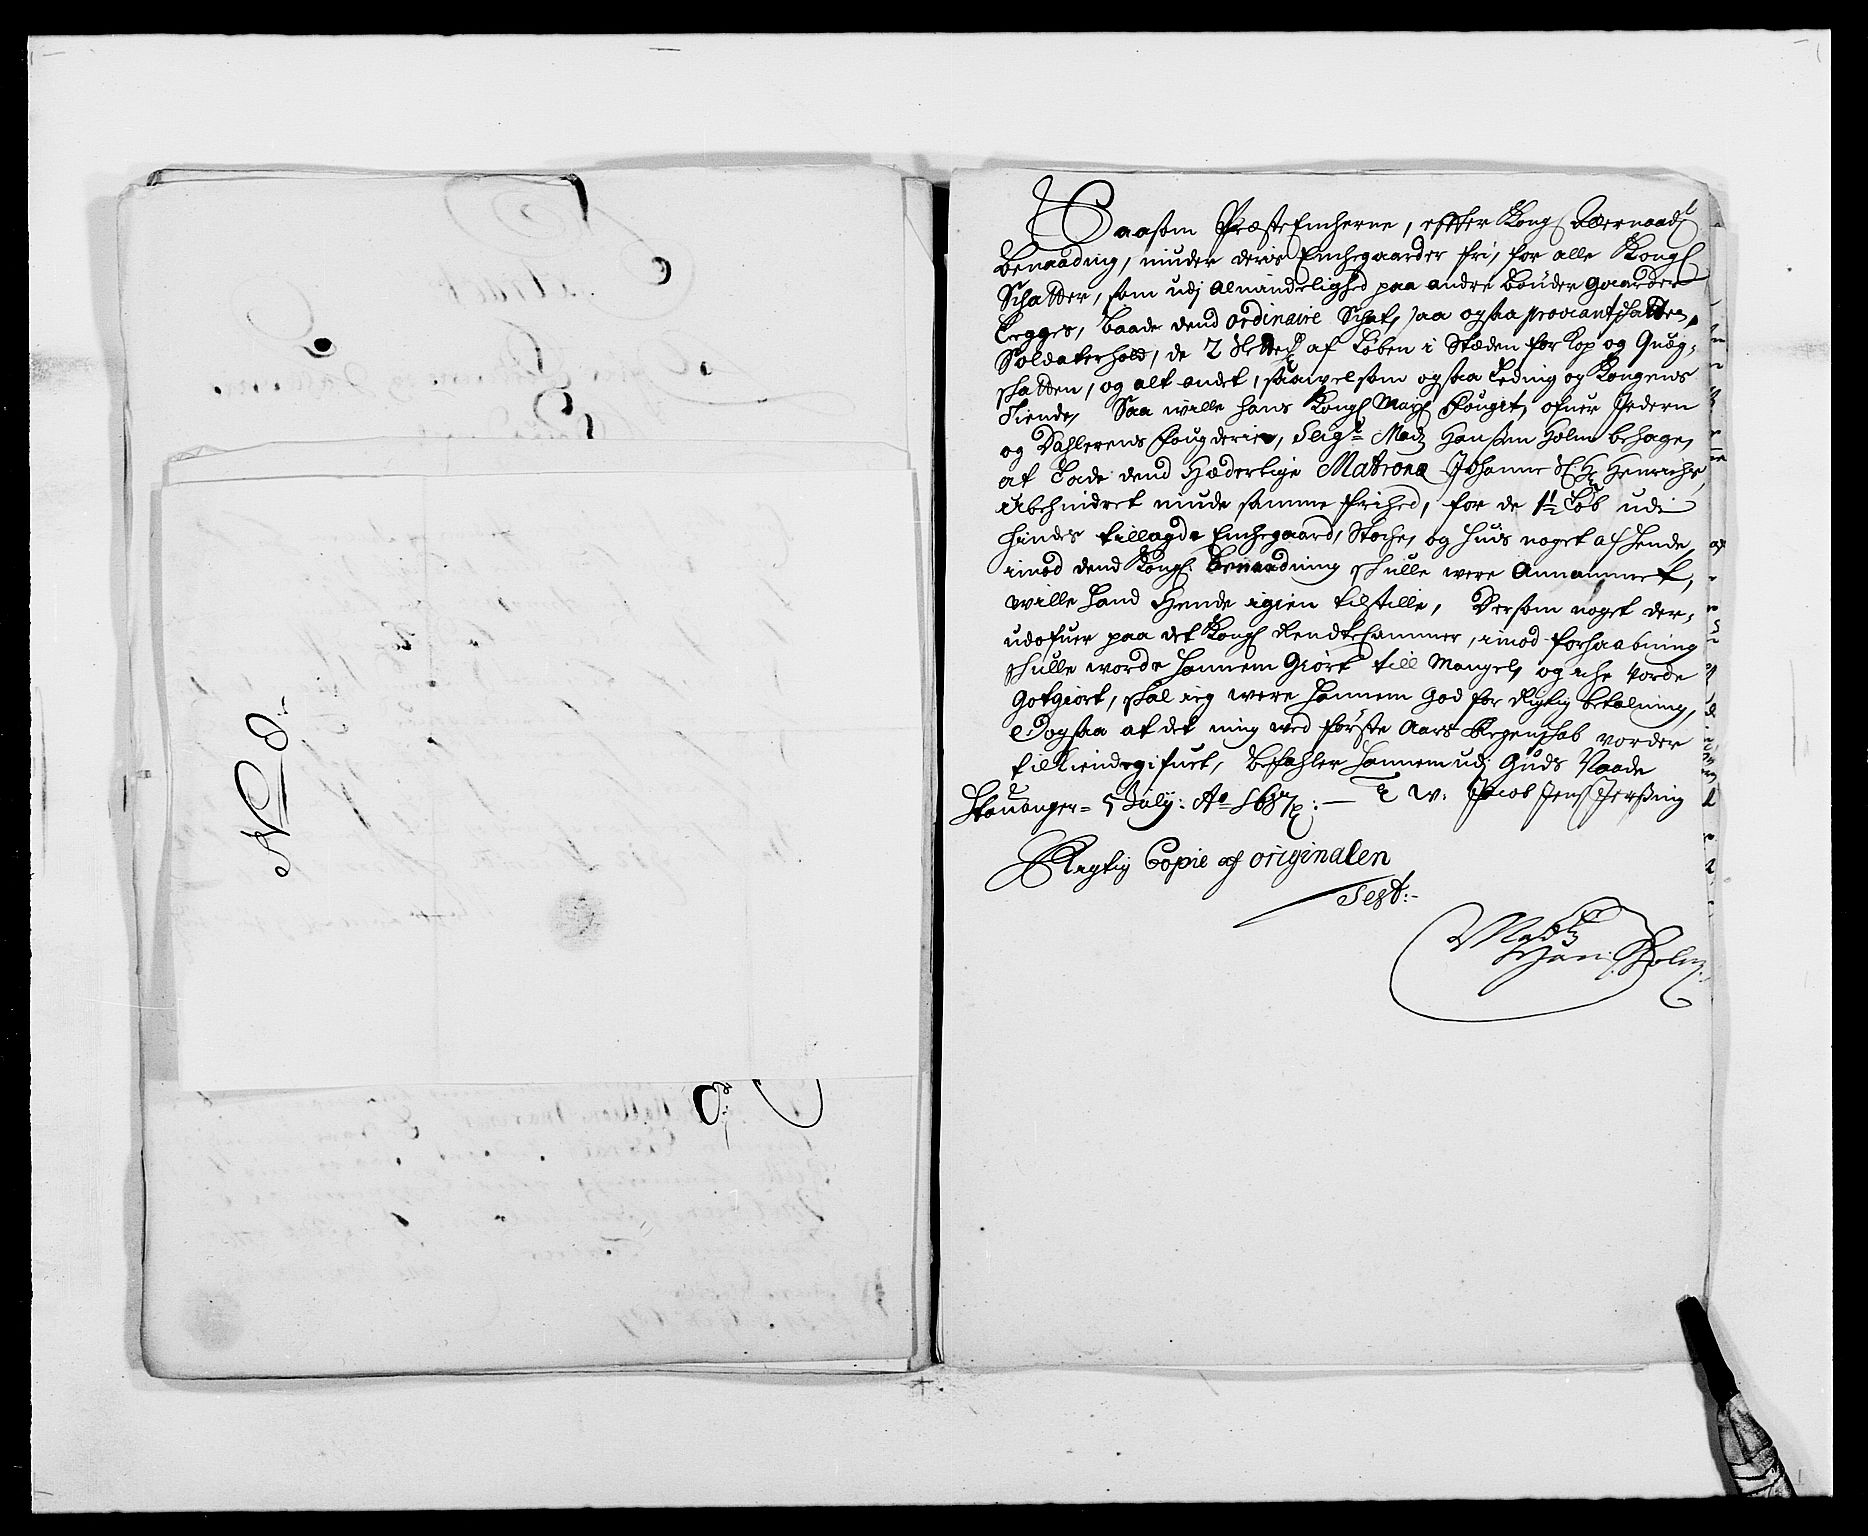 No 8:
Saasom Præste Encherne, effter Kongl Allernaadl
benaading, niuder deris Enchegaarder frj, for alle Kongl
Schatter, som udj Almindelighed paa andre bønder gaarder
Legges, baade dend ordinaire Schat, saa ogsaa proviantschatten,
Soldaterhold, de 2 af Løben i Stæden for Kop og Quæg-
schatten, og alt andet, saavelsom ogsaa Leding og Kongens
Tiende, Saa wille hans Kongl Mayts Fougit, ofuer Jedern
og Dahlerens Fougderier, Seigr Madz Hanssen Holm behage,
at Lade dend Hæderlige Matrona Johanne Sl: Hr Henrichs,
Ubehindret niude samme frihed, for de 1½ Løb udi
hindes tillagde Enchegaard, Stoche, og huis noget af hende,
imod dend Kongl: benaadning schulle were Annammet,
wille hand Hende igien tilstille, Dersom noget der-
udofuer paa det Kongl Rendte Cammer, imod forhaabning
schulle worde hannem Giort till Mangel, og iche vorde
Gotgiort, schal ieg were hannem God for Rigtig betalning,
Dogsaa at det mig ved første Aars Regenschab vorder
tilkiendegifuet, befahler hannem udj Guds Naade
Stavanger = 5 July: Ao 1687: — E W. Jacob Jens Jerssing
Rigtig Copie af originalen
Test:
Madtz
Hans: Holm
8: